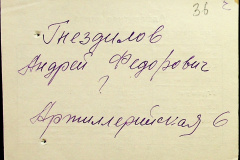 36 с
Гнездилов
Андрей Федорович
?
Артиллерийская 6